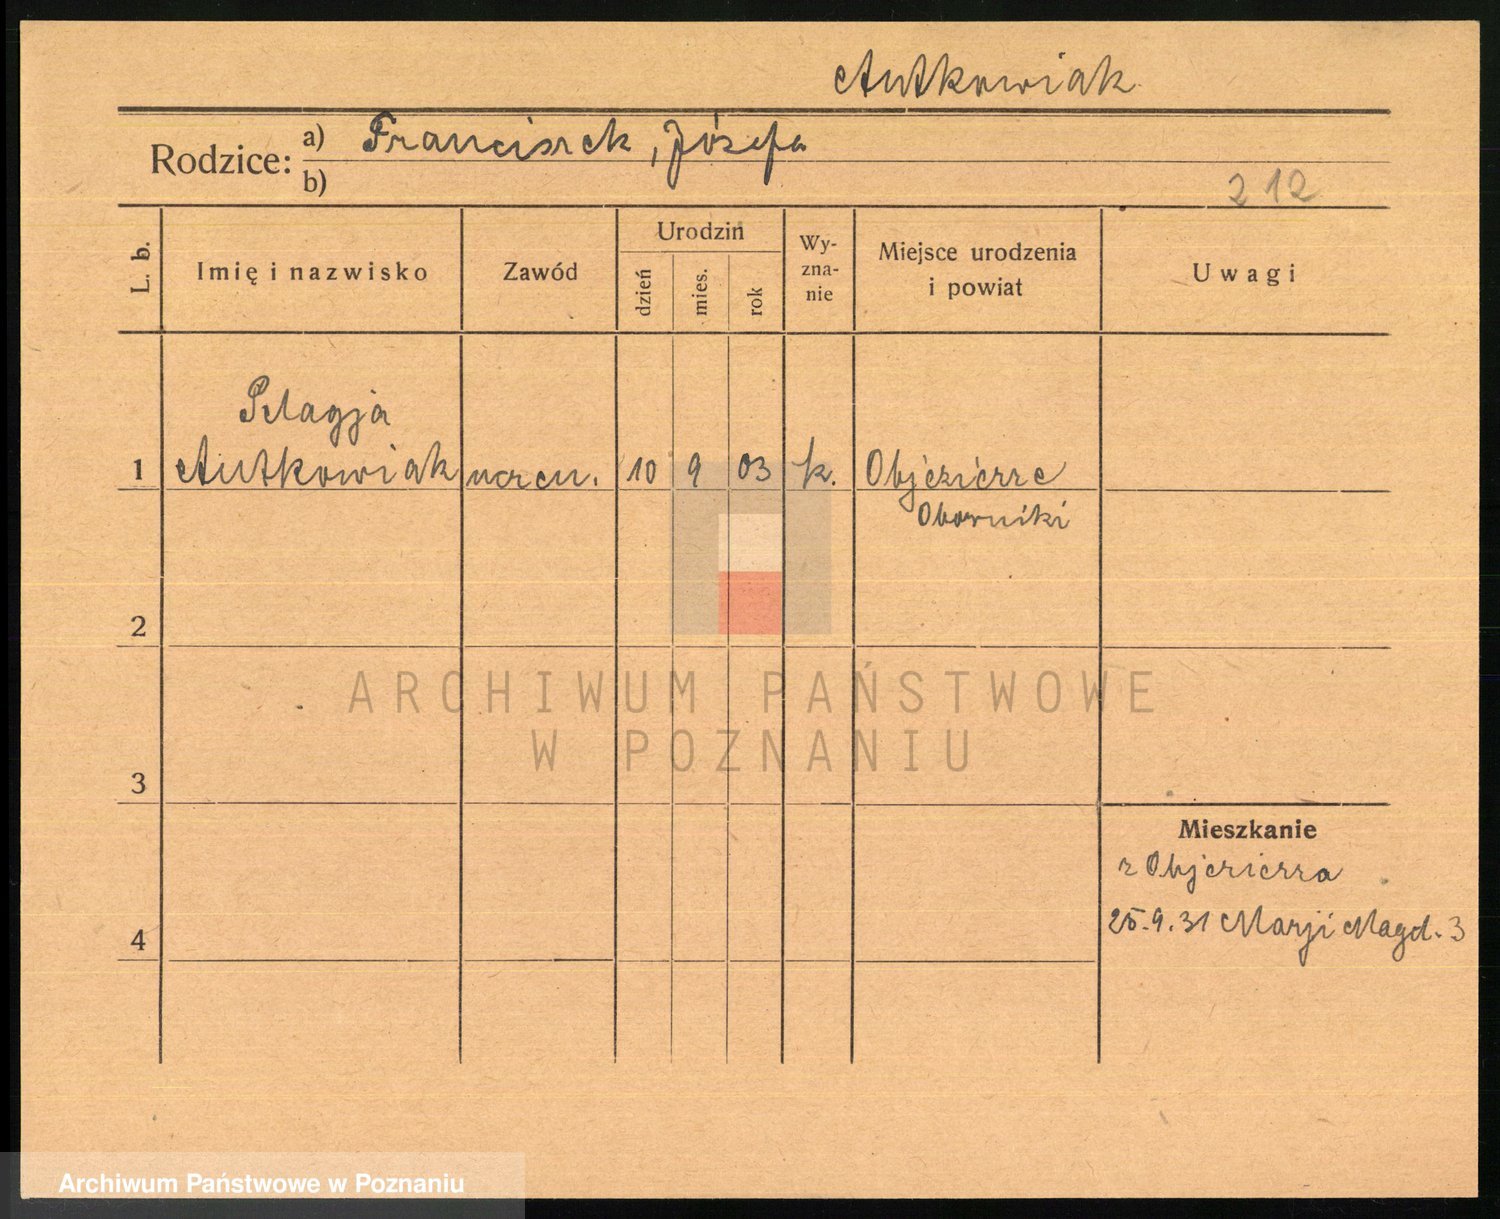 Antkowiak
Rodzice:
a) Franciszek, Józefa
b)
212
L. b.
Imię i nazwisko
Zawód
Urodzin
dzień
mies.
rok
Wy-
zna-
nie
Miejsce urodzenia
i powiat
Uwagi
Pelagja
1 Antkowiak uczen. 10 9 03 k. Objezierze
Oborniki
2
ARCHIWUM PAŃSTWOWE
W POZNANIU
3
Mieszkanie
z Objezierza
25.9.31 Marji Magd. 3
4
Archiwum Państwowe w Poznaniu